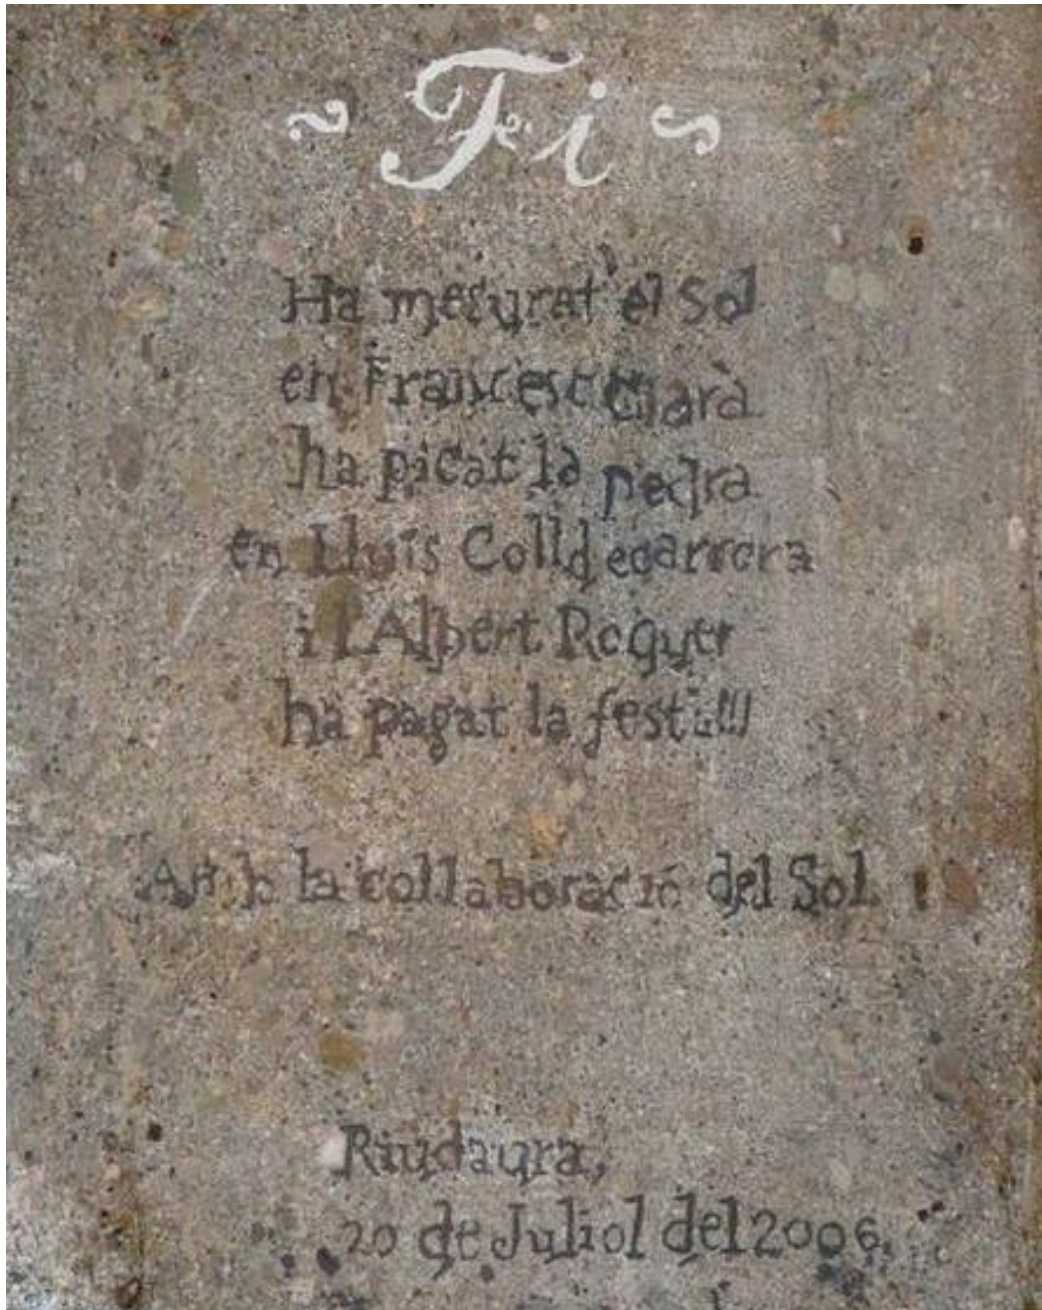 Fi
Ha mesurat el Sol
en Francesc Clarà
ha picat la pedra
en Lluís Colldecarrera
i l'Albert Roguer
ha pagat la festa!!!
Amb la collaboració del Sol.
Riudaura,
20 de Juliol del 2006.